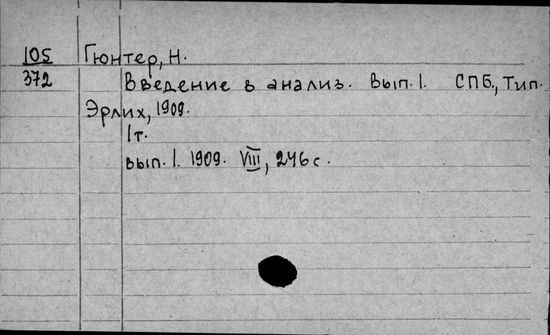 105 Гюнтер, Н.
372 Введение в анализ. Вып. 1. СПБ., Тип.
Эрлих, 1909.
1т.
вып. 1. 1909. VIII, 246 с.